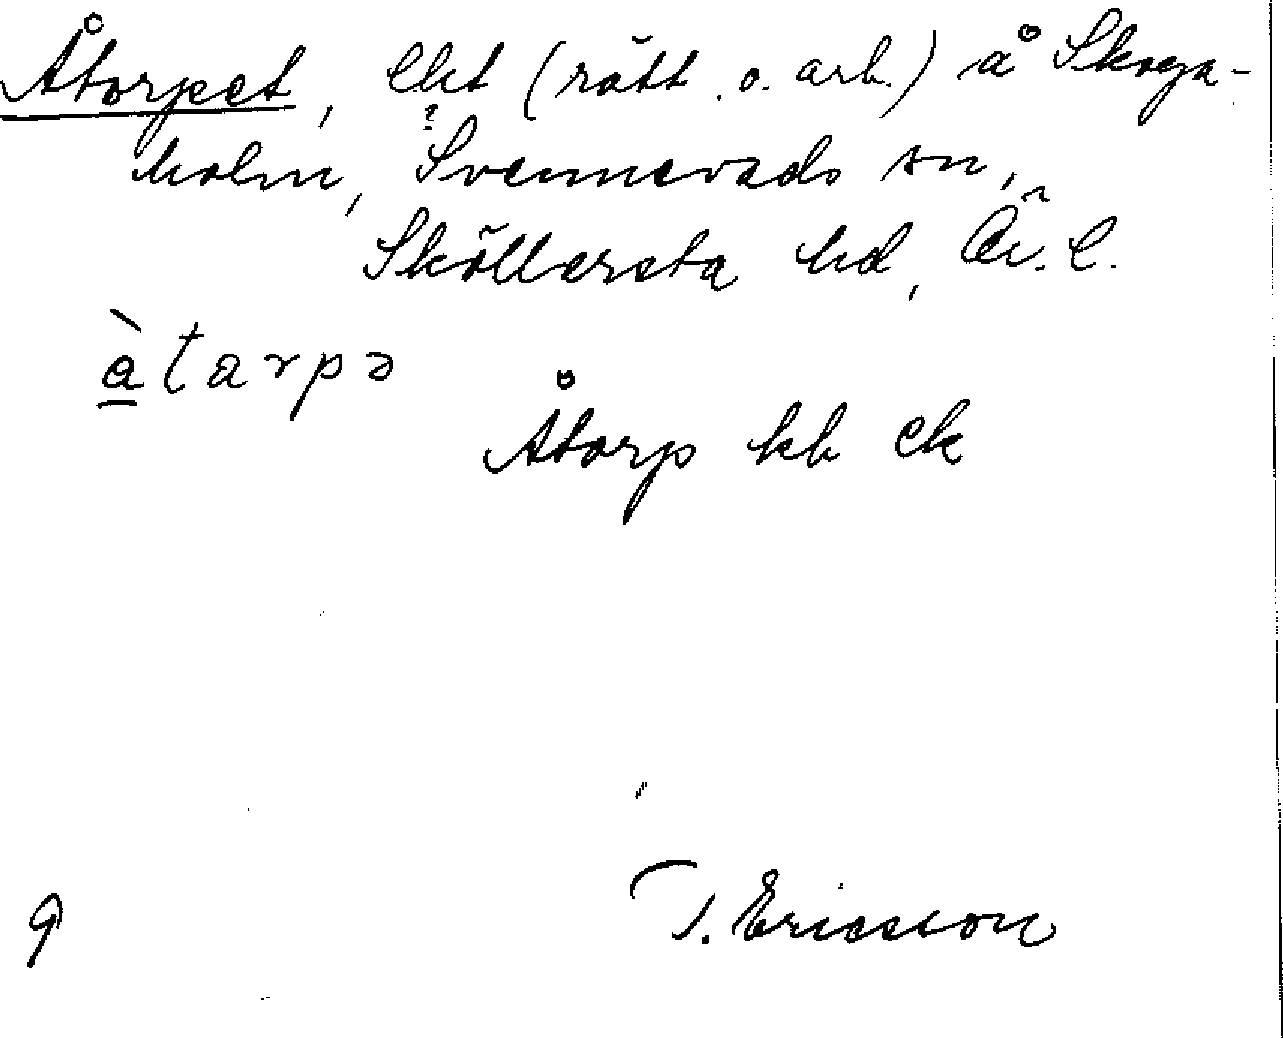 Åtorpet, lht (rätt. o. arb.) å Skoga-
holm, Svennevads sn,
Sköllersta hd, Ör. l.
à̲tarpə
Åtorp kb ek
9
T. Ericsson